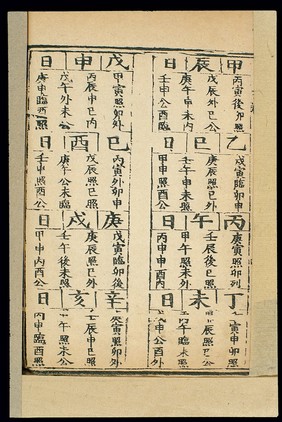 甲辰日
丙寅後卯
戊辰外巳公
庚午申未內
壬申公酉臨
乙巳日
戊寅臨卯申
庚辰照巳外
壬午申未照
甲申照酉公
丙午日
庚寅照卯
壬辰後巳照
甲午照未外
申申酉內
丁未日
寅申卯照
辰照巳外
午臨未照
申公酉外
戊申日
甲寅照卯外
丙辰申巳內
戊午外未公
庚申臨酉照
己酉日
丙寅外卯申
戊辰照巳照
庚午公未臨
壬申照酉公
庚戌日
戊寅臨卯後
庚辰照巳外
壬午後未照
甲申申酉公
辛亥日
庚寅照卯外
壬辰申巳照
午照未公
丙申臨酉照